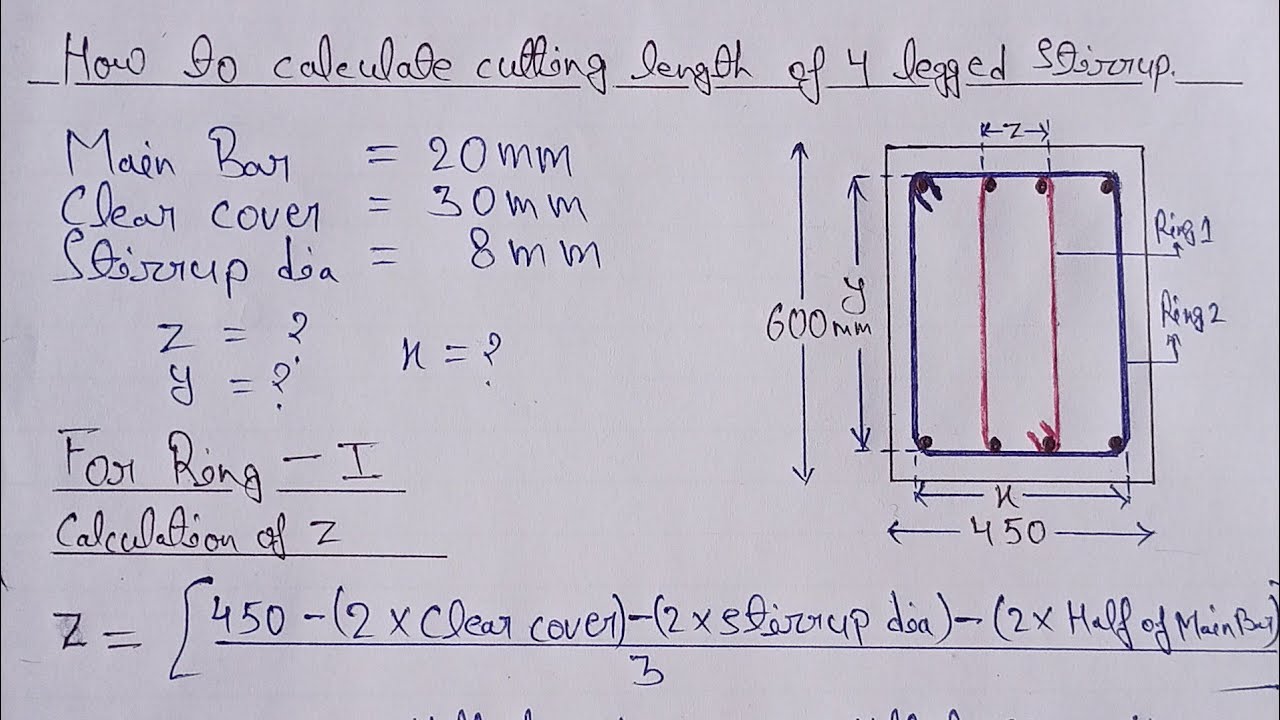 How to calculate cutting length of 4 legged Stirrup.
Main Bar = 20mm
Clear cover = 30mm
Stirrup dia = 8mm
z = ?
x = ?
y = ?
For Ring - I
Calculation of z
z = [450 - (2 × Clear cover) - (2 × stirrup dia) - (2 × Half of Main Bar)]
3
z
Ring 1
y
600mm
Ring 2
x
450